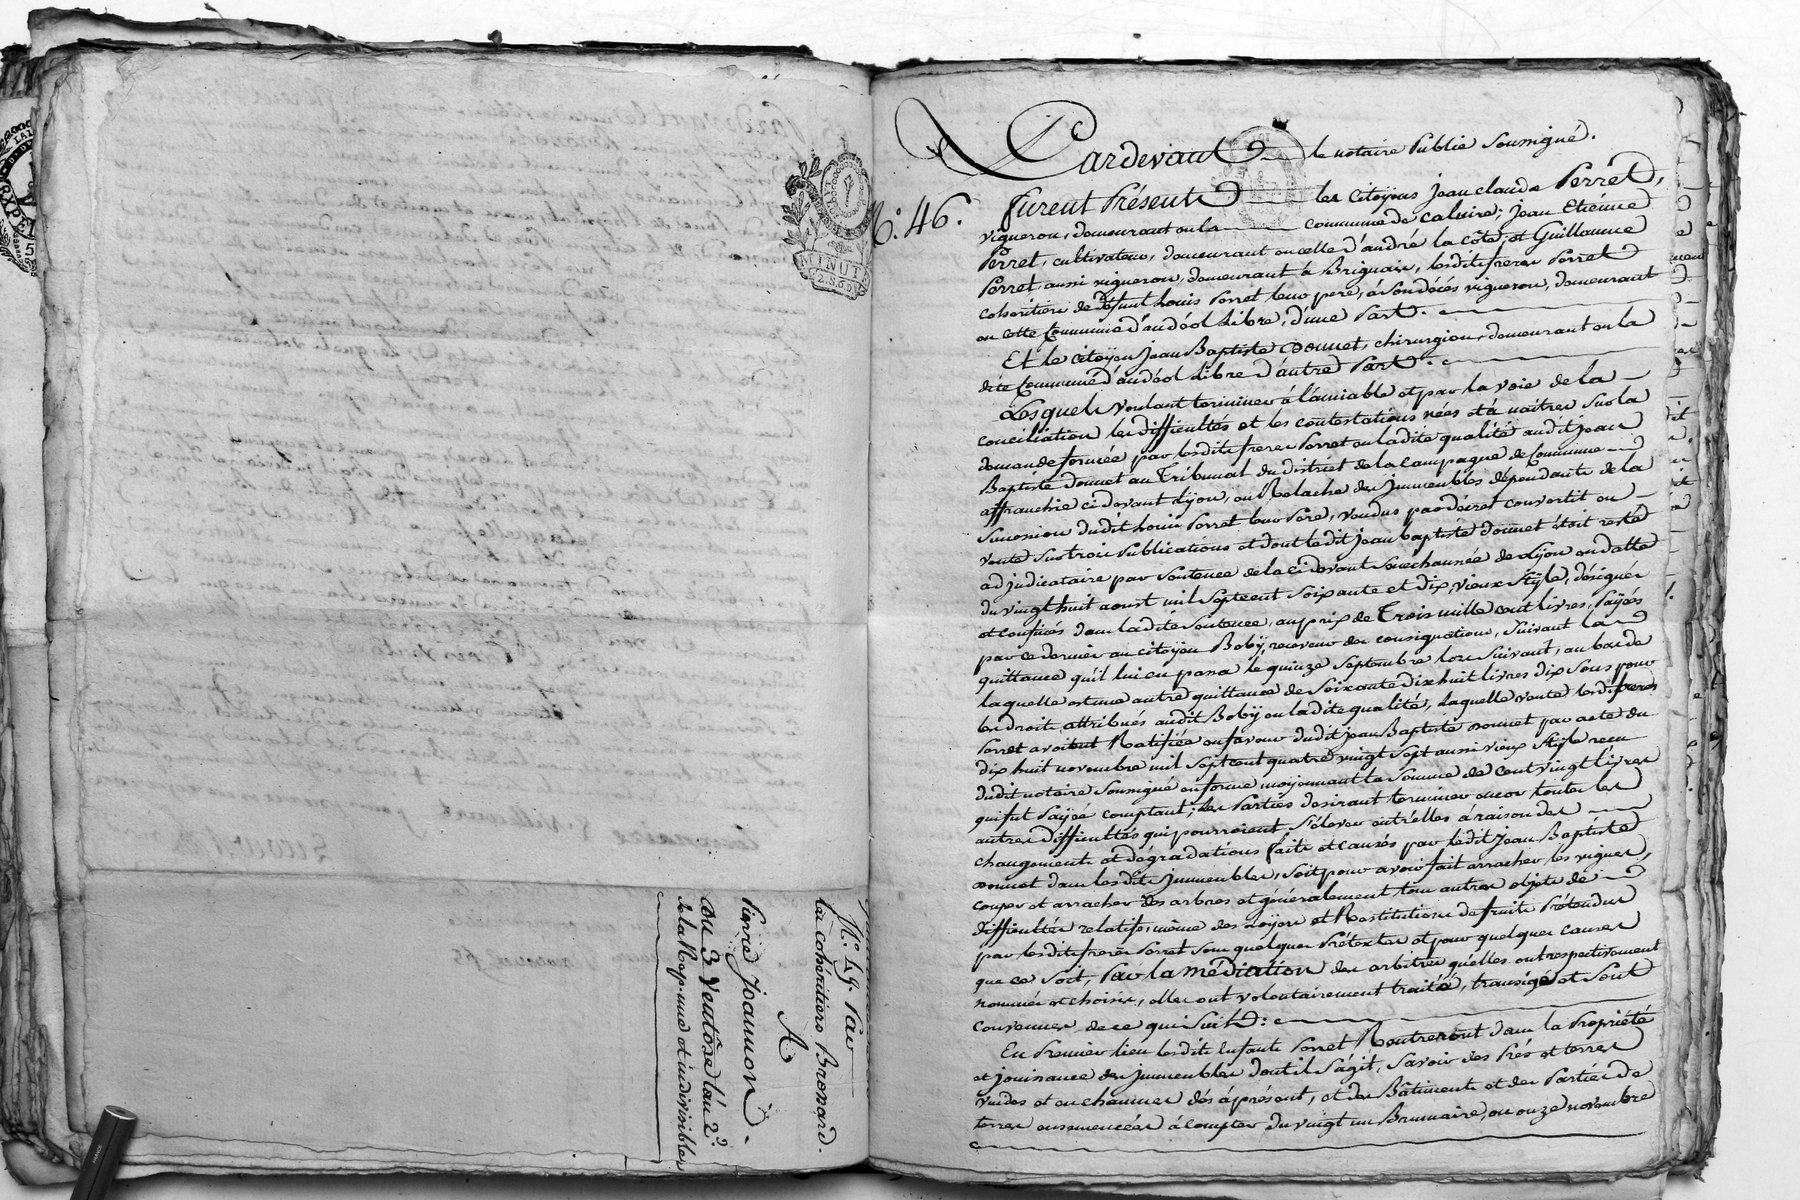 MINUTE
2.S.6D.
N.º 49. Par
les cohéritiers Bronard.
A
Pierre Joannon.
Du 3 Ventôse l'an 2.e
de la Rép. une et indivisible
N.º 46.
Pardevant le notaire Public Soussigné.
furent Présents les Citoÿens Jean Claude Perret,
vigneron, demeurant en la commune de Caluire; Jean Etienne
Perret, cultivateur, demeurant en celle d'andré la côte; et Guillaume
Perret, aussi vigneron, demeurant à Brignais, lesdits freres Perret
cohéritiers de défunt Louis Perret leur pere, à son décès vigneron, demeurant
en cette Commune d'andéol Libre, d'une Part.
Et le citoÿen Jean Baptiste Donnet, chirurgien, demeurant en la
dite Commune d'andéol Libre d'autre Part.
Lesquels voulant terminer à l'amiable et par la voie de la
conciliation les difficultés et les contestations nées et à naitre, sur la
demande formée par lesdits freres Perret en ladite qualité audit Jean
Baptiste Donnet au Tribunal du district de la campagne de Commune
affranchie ci devant Lÿon, en Relache des Immeubles dépendants de la
Succession dudit Louis Perret leur Pere, vendus par décret convertit en
vente Sur trois Publications et dont ledit Jean baptiste Donnet étoit resté
adjudicataire par Sentence de la ci devant Sénéchaussée de Lÿon en datte
du vingt huit aoust mil Sept cent Soixante et dix, vieux Stÿle, désignés
et confinés dans ladite Sentence, au prix de Trois mille cent livres, Païés
par ce dernier au citoÿen Bobÿ, receveur des consignations, Suivant la
quittance qu'il lui en passa le quinze Septembre lors Suivant, au bas de
laquelle est une autre quittance de Soixante dix huit livres dix Sous pour
les droits attribués audit Bobÿ en ladite qualité, Laquelle vente lesdits freres
Perret avoient Ratifiée en faveur dudit Jean Baptiste Donnet par acte du
dix huit novembre mil Sept cent quatre vingt Sept aussi vieux Stÿle reçu
dudit notaire Soussigné en forme moÿennant la Somme de cent vingt livres
qui fut Païée comptant; les Parties desirant terminer encor toutes les
autres difficultés qui pourroient S'élever entr'elles à raison des
changements et dégradations faits et causés par ledit Jean Baptiste
Donnet dans lesdits Immeubles, Soit pour avoir fait arracher les vignes,
couper et arracher des arbres et généralement tous autres objets de
difficultés relatifs, même des Loÿers et Restitutions de fruits Prétendus
par lesdits freres Perret Sous quelques Prétextes et pour quelques causes
que ce Soit, Par la médiation des arbitres qu'elles ont respectivement
nommés et choisis, elles ont volontairement traité, transigé et Sont
convenues de ce qui Suit:
En Premier lieu lesdits Enfants Perret Rentreront dans la Propriété
et jouissance des Immeubles dont il S'agit, Savoir des Prés et terres
vuides et en chaumes dès à présent, et des Bâtiments et des Parties de
terres ensemencées à compter du vingt un Brumaire, ou onze novembre